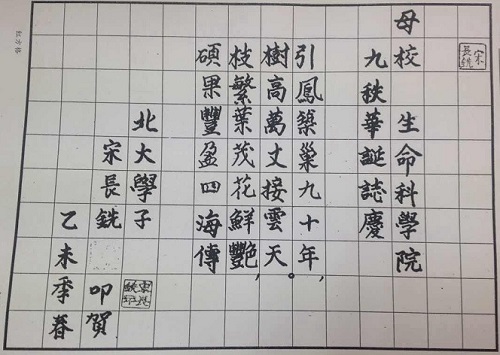 宋長銑
母校生命科學院
九秩華誕誌慶
引鳳築巢九十年，
樹高萬丈接雲天。
枝繁葉茂花鮮艷，
碩果豐盈四海傳
北大學子
宋長銑 叩賀
乙未季春